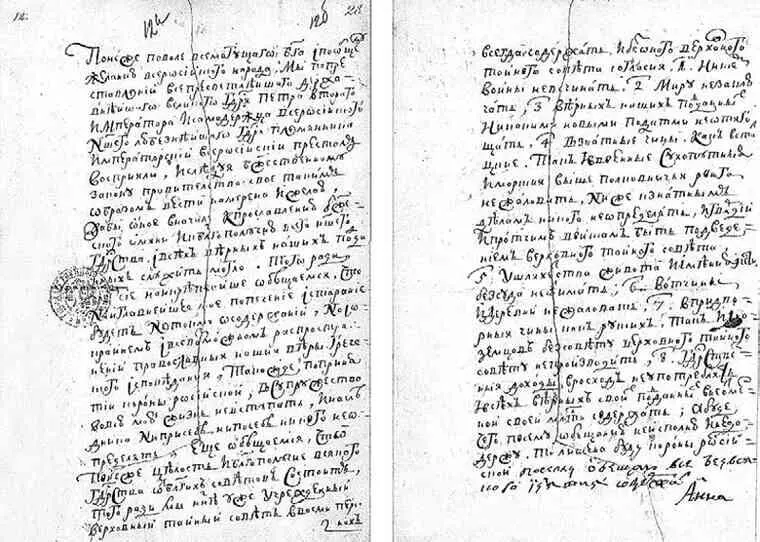 14. 12и 12б 28
Понеже поволе всемогущаго бга ипообще
желанию всеросиского народа. Мы попре
ставлении всепресветлейшаго держа
внейшаго великого Гдря Петра второго
Императора исамодержца всеросииского
Ншего любезнейшаго Гдря племянника
императорский всеросиский престол
восприяли, иследуя бжественному
закону правительство свое таким
образом вести намерена ижелаю,
дабы оное вначале кпрославлению бже
ского имяни иквлагополучию всего ншего
Гдрства, ивсех верных наших подда
ных служить могло. Того ради
чрез сие наикрепчайше обещаемся, что
наиглавнейшее мое попечение истарание
будет нетокмо осодержании, нои о
крайнем ивсевозможном распростра
нении православныя нашия веры грече
ского исповедания, такожде поприня
тии короны росииской, всупружество
вовсю мою жизнь невступать, инасле
дника ниприсебе нипосебе никого неоп
ределять, Еще обещаемся, что
понеже целость иблагополучие всякого
Гдрства от благих советов состоит,
того ради мы ныне уже учрежденный
верховный тайный совет ввосми персо
нах
всегда содержать. ибезоного верховного
тайного совета согласия. 1. ниске
войны невсчинать. 2. миру незаклю
чать, 3. верных наших подданных
никакими новыми податми неотяго
щать. 4. взнатные чины, как встат
цкие, так ивоенные сухопутныя
иморския выше полковничья ранга
нежаловать, ниже кзнатным
делам никого неопределять, игвардии
ипротчим войскам быть подведе
нием верховного тайного совета,
5. ушляхетства живота иимения
безсуда неотимать, 6. вотчины
идеревни нежаловать, 7. впридво
рные чины как руских, так иино
земцов безсовету верховного тайного
совета непроизводить, 8. гдрстве
нныя доходы врасход неупотреблять
ивсех верных своих подданных внеотме
нной своей млсти содержать, абуде
чего посему обещанию неисполню инедо
держу, то лишена буду короны росии
ской посему обещаю все безвся
кого изъятия содержать
Анна